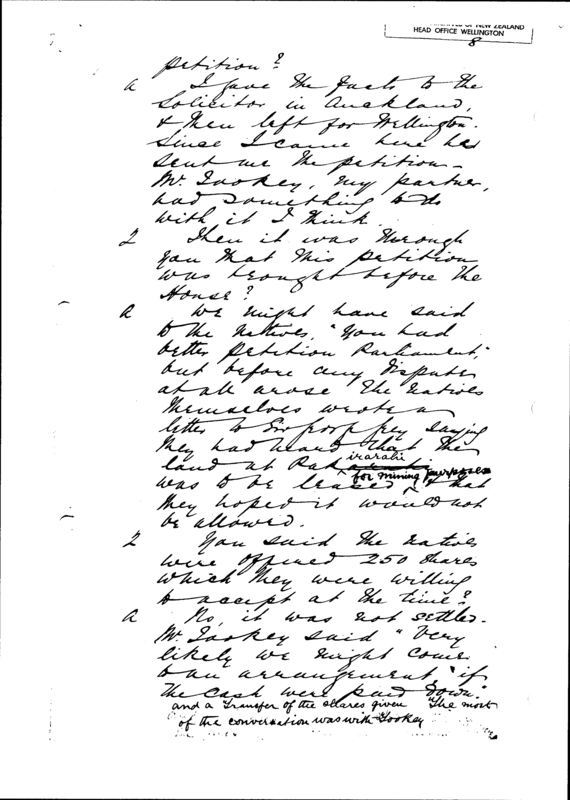 OF NEW ZEALAND
HEAD OFFICE WELLINGTON
8
petition?
A I gave the facts to the
Solicitor in Auckland,
& then left for Wellington.
Since I came here he
sent me the petition –
Mr. Tookey, my partner,
had something to do
with it I think
Q Then it was through
you that this petition
was brought before the
House?
A We might have said
to the Natives, "You had
better petition Parliament,"
but before any disputes
at all arose the Natives
themselves wrote a
letter to saying
they had heard that the
irarahi
land at
for mining purposes
was to be leased & that
they hoped it would not
be allowed.
Q You said the Natives
were offered 250 shares
which they were willing
to accept at the time?
A No, it was not settled.
Mr. Tookey said "Very
likely we might come
to an arrangement," if
the cash were paid down"
and a Transfer of the shares given "The most
of the conversation was with Tookey